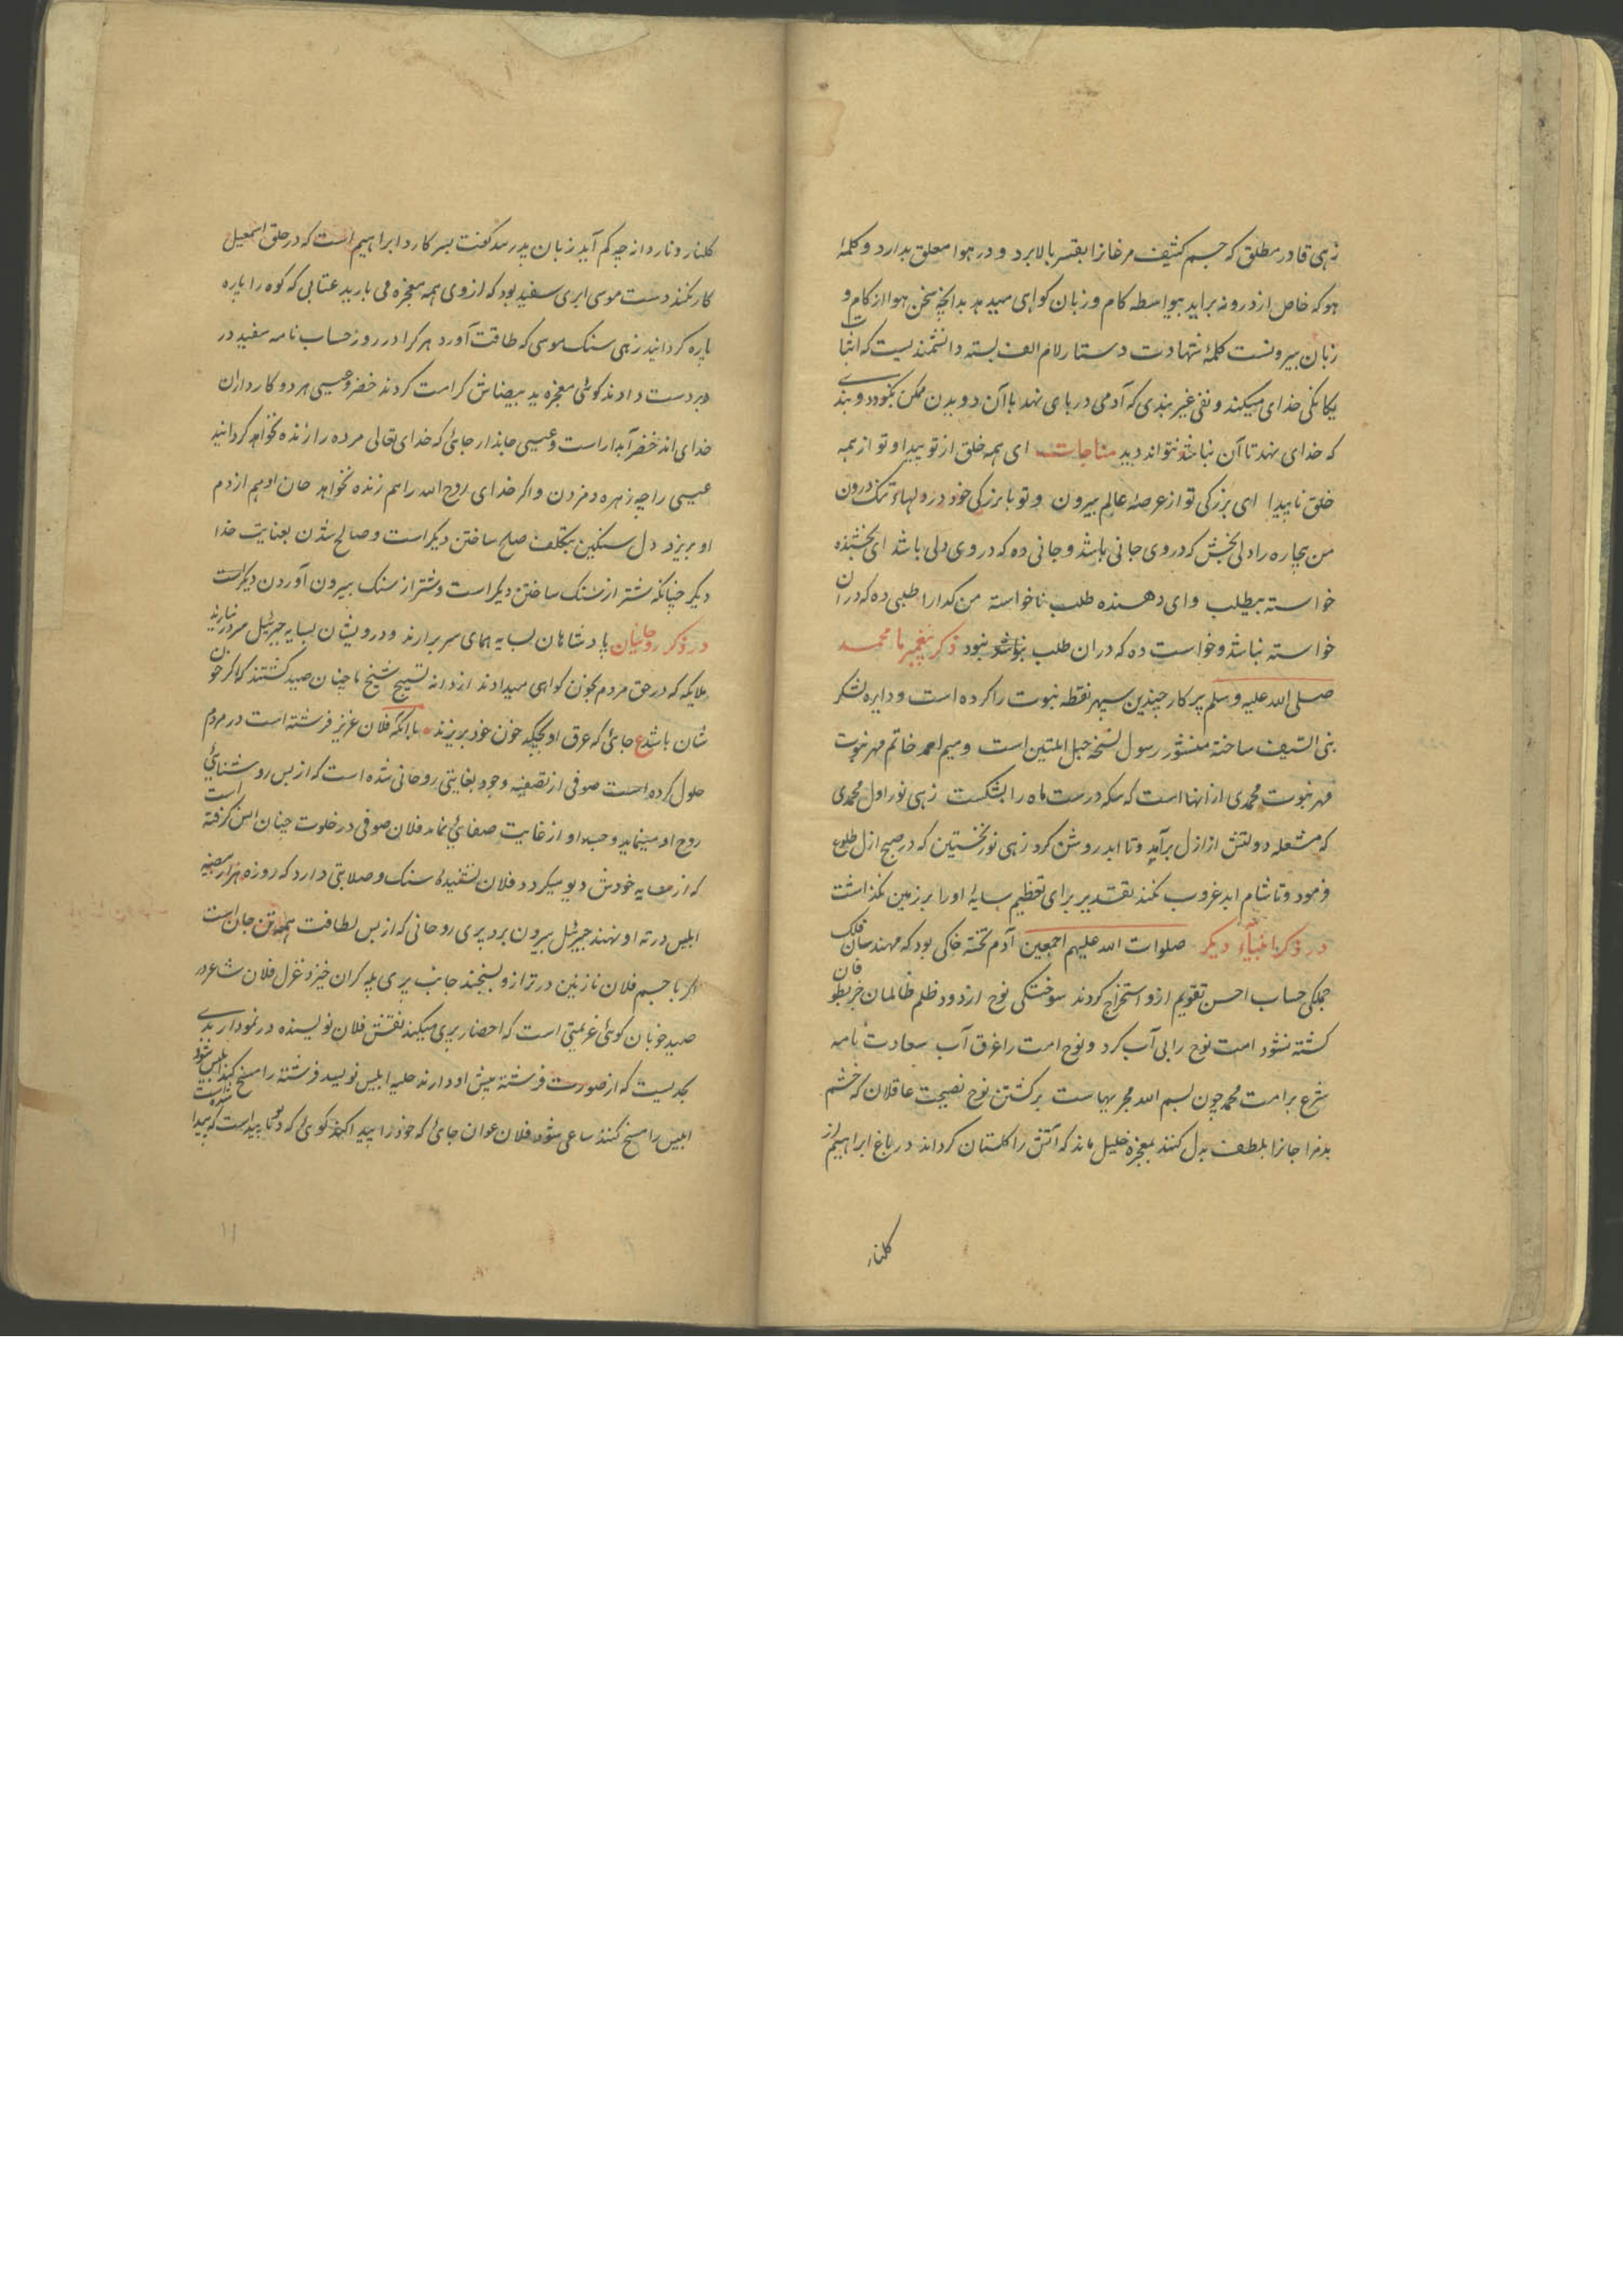 زهی قادر مطلق که جسم کثیف مرغانرا بقسر بالا برد و در هوا معلق بدارد و کلمهٔ
هو که خاص از درونه براید بیواسطه کام و زبان کواهی میدهد بدانچه سخن هو از کام و
زبان بیرونست کلمهٔ شهادت دستار لام الف بسته دانشمندیست که اثبات
یکانکی خدای میکند و نفی غیر بندی که آدمی در پای نهد باآن دویدن ممکن بود و بندی
که خدای نهد تا آن نباشد نتواند دید مناجات ای همه خلق از تو پیدا و تو از همه
خلق ناپیدا ای بزرکی تو از عرصهٔ عالم بیرون و تو با بزرکی خود در دلهاء تنک درون
من بیچاره را دلی بخش که در وی جانی باشد و جانی ده که در وی دلی باشد ای بخشنده
خواسته بیطلب و ای دهنده طلب ناخواسته من کدا را طلبی ده که در ان
خواسته نباشد و خواست ده که در ان طلب نبود ذکر پیغمبر ما محمد
صلی الله علیه وسلم پرکار چندین سپهر نقطه نبوت را کرده است و دایره لشکر
نبی السیف ساخته منشور رسول نسخه حبل المتین است و میم احمد خاتم مهر نبوت
مهر نبوت محمدی از انها است که سکه درست ماه را بشکست زهی نور اول محمدی
که مشعله دولتش از ازل برآمد و تا ابد روشن کرد زهی نور نخستین که در صبح ازل طلوع
فرمود و تا شام ابد غروب نکند تقدیر برای تعظیم سایهٔ او را بر زمین نکذاشت
در ذکر انبیاء دیکر صلوات الله علیهم اجمعین آدم تخته خاکی بود که مهندسان فلک
جملکی حساب احسن تقویم ازو استخراج کردند سوختکی نوح از دود ظلم ظالمان جز بطوفان
کشته نشود امت نوح را بی آب کرد و نوح امت را غرق آب سعادت نامه
شرع بر امت محمد چون بسم الله مجریهاست برکشتن نوح نصیحت عاقلان که خشم
بدمزاجانرا بلطف بدل کنند بمعجزه خلیل ماند که آتش را کلستان کرداند در باغ ابراهیم از
کلنار
کلنار و نار دانه چه کم آید زبان پدر سد کفت پسر کارد ابراهیم است که در حلق اسمعیل
کار نکند دست موسی ابری سفید بود که از وی همه معجزه می بارید عتابی که کوه را پاره
پاره کردانید زهی سنک موسی که طاقت آورد هر کرا در روز حساب نامه سفید در
در دست دادند کوئی معجزه ید بیضاش کرامت کردند خضر و عیسی هر دو کارداران
خدای اند خضر آبدار است و عیسی جاندار جائی که خدای تعالی مرده را زنده نخواهد کردانید
عیسی را چه زهره دم زدن و اکر خدای روح الله را هم زنده نخواهد جان او هم از دم
او بریزد دل سنکین بتکلف صلح ساختن دیکر است و صالح شدن بعنایت خدا
دیکر چنانکه شتر از سنک ساختن دیکر است و شتر از سنک بیرون آوردن دیکر است
در ذکر روحانیان پادشاهان بسایه همای سر برارند و درویشان بسایه جبرئیل سر در نیارند
ملایکه که در حق مردم بخون کواهی میدادند از دانه تسبیح شیخ ما چنان صید کشتند که اکر خون
شان باشد ع جائی که عرق او بچکد خون خود بریزند باانکه فلان عزیز فرشته است در مردم
حلول کرده است صوفی از تصفیه وجود بغایتی روحانی شده است که از بس روشنایی
روح او مینماید و جسد او از غایت صفائی نماند فلان صوفی در خلوت چنان انس کرفته است
که از سایه خودش دیو میکردد فلان سنک و صلابتی دارد که روزه هزار بیضه
ابلیس در ته او نهند جبرئیل بیرون برد پری روحانی که از بس لطافت همه تن جان است
اکر با جسم فلان نازنین در ترازو بسنجند جانب پری پله کران خیزد غزل فلان شاعر در
صید خوبان کوئی عزیمتی است که احضار پری میکند نقش فلان نویسنده در نمودار بدی
بحدیست که از صورت فرشته پیش او دارند حلیه ابلیس نویسد فرشته را مسخ کنند ابلیس شود
ابلیس را مسخ کنند ساعی شود فلان عوان جائی که خود را پیدا کند کوی که دنیا پیدا شده است که پیدا
۱۱